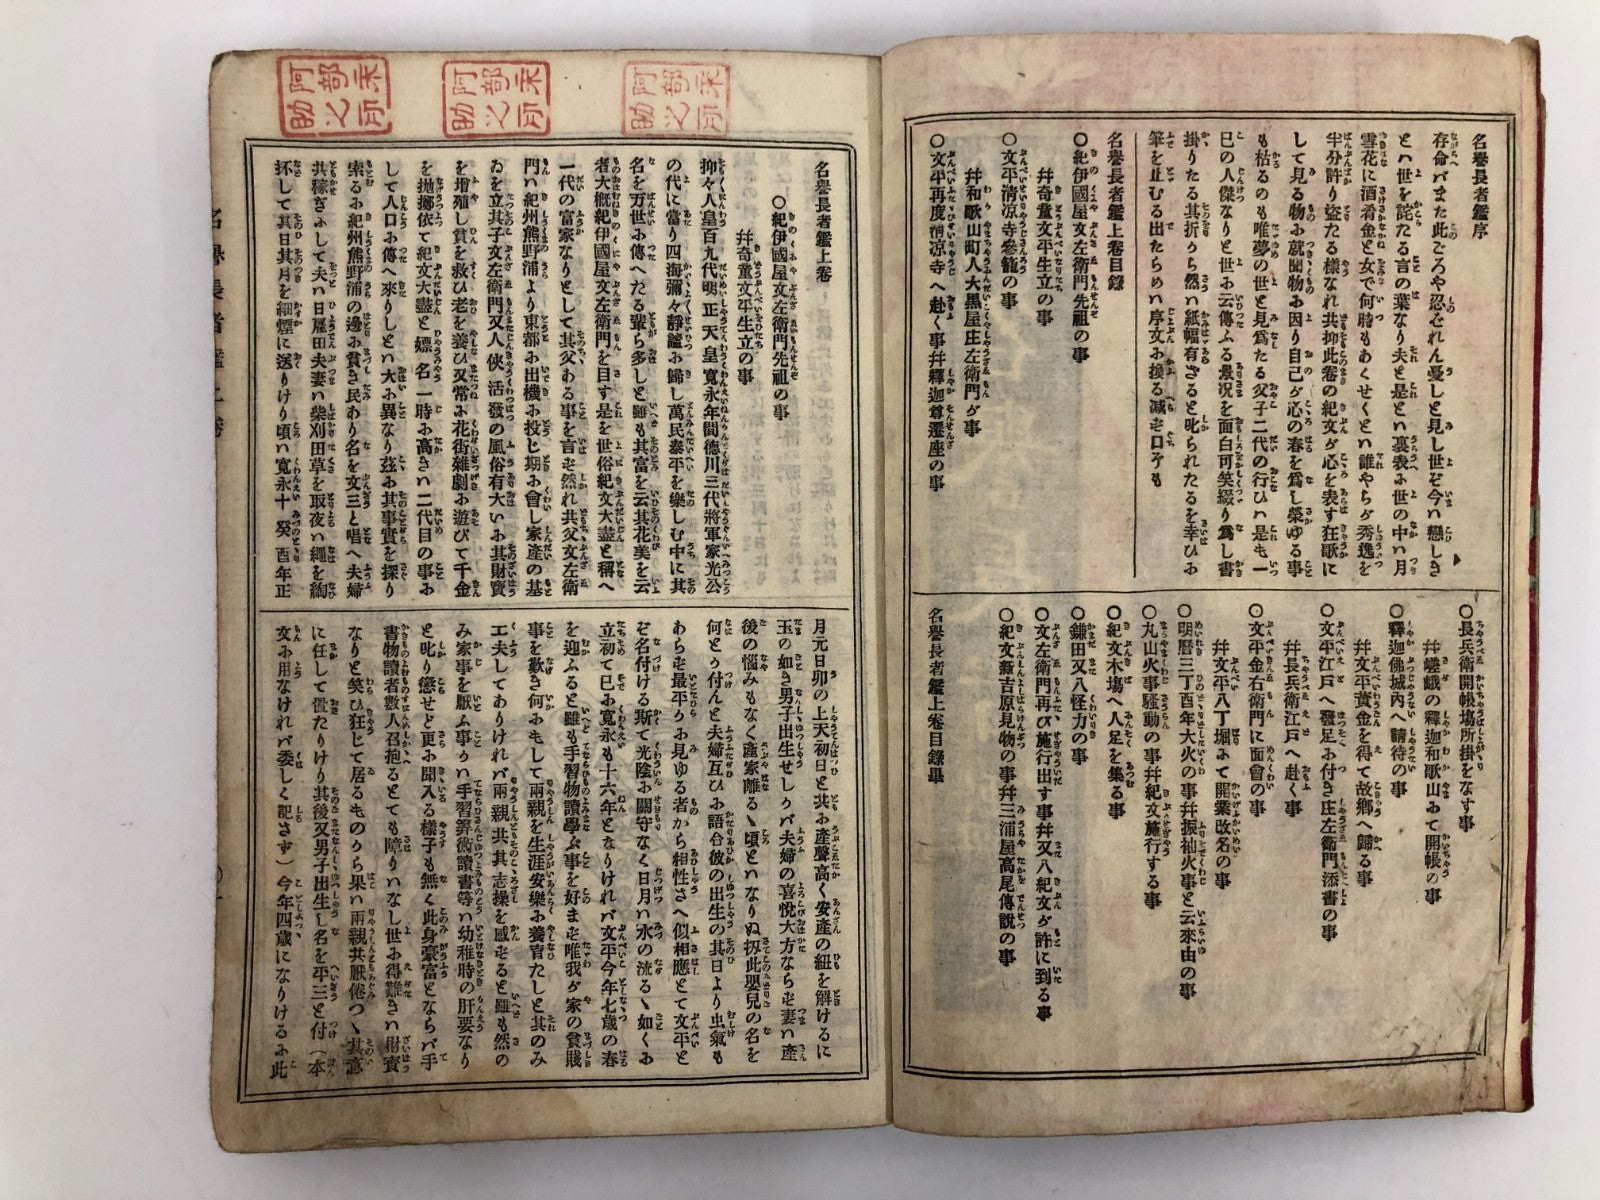 名譽長者鑑序
存命へバまた此ごろや忍ばれん憂しと見し世ぞ今ハ戀しき
とハ世を詫たる言の葉なり夫と是とハ裏表ふ世の中ハ月
雪花に酒肴金と女で何時もあくせくといハ誰やらが秀逸を
半分許り盗たる樣なれ共抑此巻の紀文が心を表す狂歌に
して見る物ふ就聞物ふ因り自己が心の春を爲し榮ゆる事
も枯るのも唯夢の世と見爲たる父子二代の行ひハ是も一
巳の人傑なりと世ふ云傳ふる景况を面白可笑綴り爲し書
掛りたる其折から然ハ紙幅有ざると叱られたるを幸ひふ
筆を止むる出たらめハ序文ふ換る减ず口ダモ
名譽長者鑑上巻目録
○紀伊國屋文左衛門先祖の事
幷奇童文平生立の事
○文平清凉寺參籠の事
幷和歌山町人大黒屋庄左衛門が事
○文平再度清凉寺へ赴く事幷釋迦尊遷座の事
○長兵衛開帳塲所掛をなす事
幷嵯峨の釋迦和歌山ふて開帳の事
○釋迦佛城内へ請待の事
幷文平黄金を得て故郷へ歸る事
○文平江戸へ發足ふ付き庄左衛門添書の事
幷長兵衛江戸へ赴く事
○文平金右衛門に面會の事
幷文平八丁堀ふて開業改名の事
○明暦三丁酉年大火の事幷振袖火事と云來由の事
○丸山火事騒動の事幷紀文施行する事
○紀文木塲へ人足を集る事
○鎌田又八怪力の事
○文左衛門再び施行出す事幷又八紀文が許に到る事
○紀文新吉原見物の事幷三浦屋高尾傳説の事
名譽長者鑑上巻目錄畢
名譽長者鑑上巻
○紀伊國屋文左衛門先祖の事
幷奇童文平生立の事
抑々人皇百九代明正天皇寛永年間德川三代將軍家光公
の代に當り四海彌々靜謐ふ歸し萬民泰平を樂しむ中に其
名を万世ふ傳へたる輩ら多しと雖も其富を云其花美を云
者大概紀伊國屋文左衛門を目す是を世俗紀文大盡と稱へ
一代の富家なりとして其父ある事を言ず然れ共父文左衛
門ハ紀州熊野浦より東都ふ出機ふ投じ期ふ會し家產の基
ゐを立其子文左衛門又人俠活發の風俗有大いふ其財寶
を增殖し貧を救ひ老を養ひ又常ふ花街雜劇ふ遊びて千金
を抛擲依て紀文大盡と嫖名一時ふ高きハ二代目の事ふ
して人口ふ傳へ來りしとハ大ふ異なり茲ふ其事實を探り
索るふ紀州熊野浦の邊ふ貧き民あり名を文三と唱へ夫婦
共稼ぎふして夫ハ日雇田夫妻ハ柴刈田草を取夜ハ繩を綯
抔して其日其月を細煙に送りけり頃ハ寛永十癸酉年正
月元日卯の上天初日と共ふ產聲高く安產の紐を解けるに
玉の如き男子出生せしかバ夫婦の喜悅大方ならず妻ハ產
後の惱みもなく產家離るゝ頃とハなりぬ扨此嬰兒の名を
何とか付んと夫婦互ひふ語合彼の出生の其日より虫氣も
あらず最平かふ見ゆる者から相性さへ似相應とて文平と
ぞ名付ける斯て光陰ふ關守なく日月ハ水の流るゝ如くふ
立初て已ふ寛永も十六年となりけれバ文平今年七歲の春
を迎ふると雖も手習物讀學ぶ事を好まず唯我が家の貧賤
事を歎き何ふもして兩親を生涯安樂ふ養育たしと其のみ
工夫してありけれバ兩親共其志操を感ずると雖も然の
み家事を厭ふ事かハ手習算術讀書等ハ幼稚時の肝要なり
と叱り懲せど更ふ聞入る樣子も無く此身豪富とならバ手
書物讀者數人召抱るとても障りハなし世ふ得難きハ財寳
なりと笑ひ狂じて居るものから果ハ兩親共厭倦つゝ其意
に任して置たりけり其後又男子出生し名を平三と付（本
文ふ用なけれバ委しく記さず）今年四歲になりけるふ此
名譽長者鑑上巻